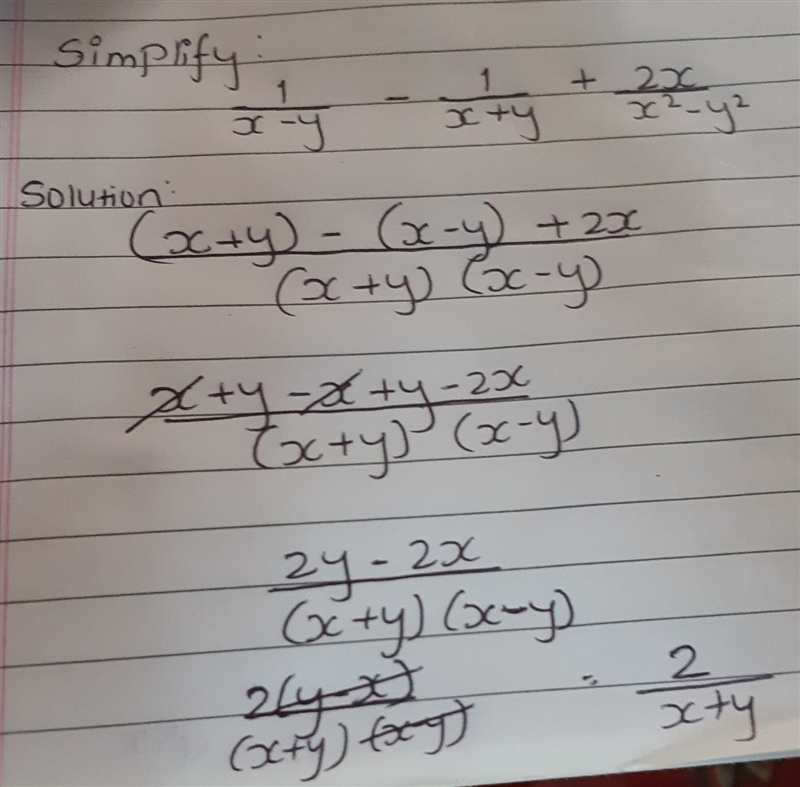 Simplify:
1/(x-y) - 1/(x+y) + 2x/(x²-y²)
Solution:
((x+y) - (x-y) + 2x)/((x+y) (x-y))
(x+y-x+y-2x)/((x+y) (x-y))
(2y-2x)/((x+y) (x-y))
2(y-x)/((x+y) (x-y)) = 2/(x+y)